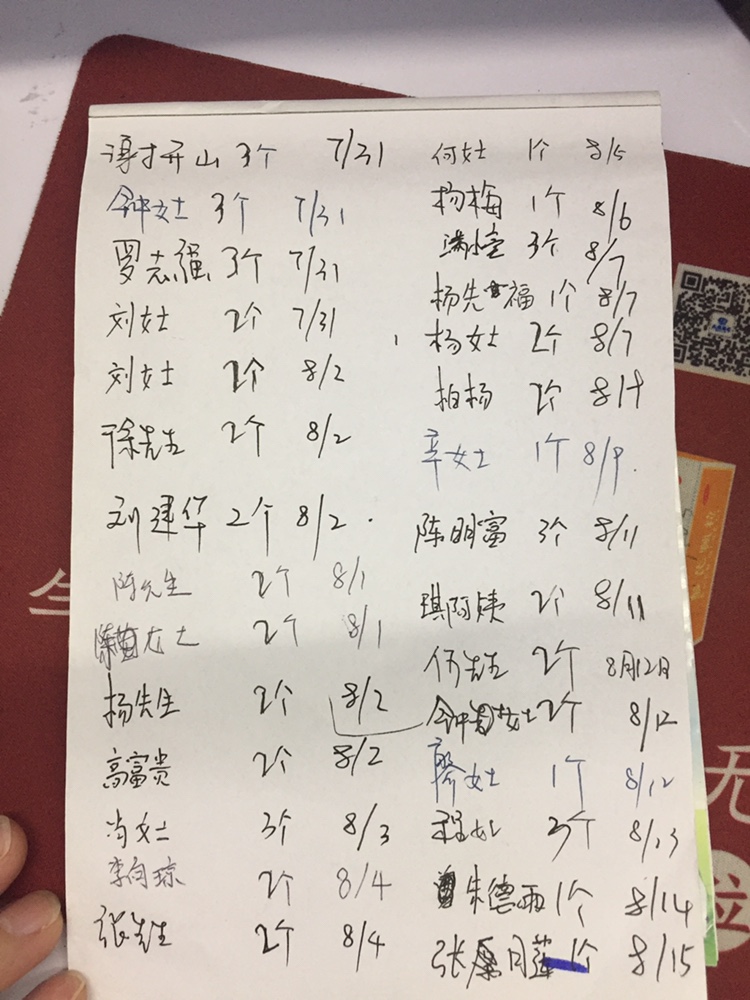 谭开山 3个 7/31
钟女士 3个 7/31
罗志强 3个 7/31
刘女士 2个 7/31
刘女士 2个 8/2
徐先生 2个 8/2
刘建华 2个 8/2.
陈先生 2个 8/1
女士 2个 8/1
杨先生 2个 8/2
高富贵 2个 8/2
肖女士 3个 8/3
李向琼 2个 8/4
张先生 2个 8/4
何女士 1个 8/5
杨梅 1个 8/6
3个 8/7
杨先福 1个 8/7
杨女士 2个 8/7
柏杨 2个
辛女士 1个 8/9.
陈明富 3个 8/11
琪阿姨 2个 8/11
伍先生 2个 8月12日
钟女士 2个 8/12
女士 1个 8/12
程女士 3个 8/13
朱德雨 1个 8/14
张月莲 1个 8/15
生
无
位